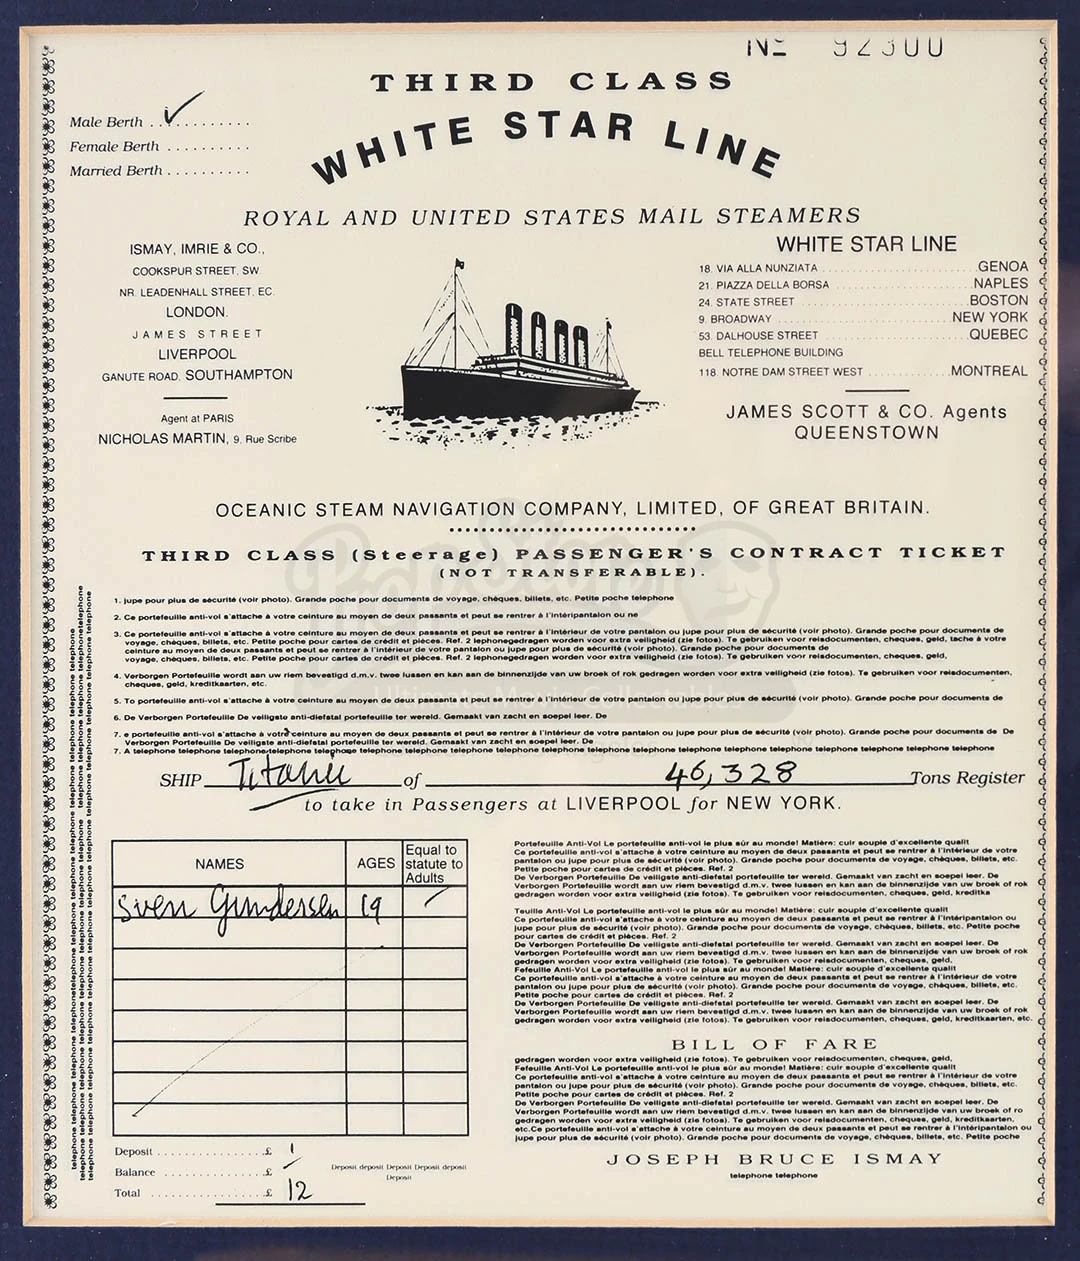 No 92300
THIRD CLASS
WHITE STAR LINE
Male Berth
Female Berth
Married Berth
ROYAL AND UNITED STATES MAIL STEAMERS
ISMAY, IMRIE & CO.,
COOKSPUR STREET, SW
NR. LEADENHALL STREET, EC.
LONDON.
JAMES STREET
LIVERPOOL
GANUTE ROAD, SOUTHAMPTON
Agent at PARIS
NICHOLAS MARTIN, 9, Rue Scribe
WHITE STAR LINE
18. VIA ALLA NUNZIATA GENOA
21. PIAZZA DELLA BORSA NAPLES
24. STATE STREET BOSTON
9. BROADWAY NEW YORK
53. DALHOUSE STREET QUEBEC
BELL TELEPHONE BUILDING
118. NOTRE DAM STREET WEST MONTREAL
JAMES SCOTT & CO. Agents
QUEENSTOWN
OCEANIC STEAM NAVIGATION COMPANY, LIMITED, OF GREAT BRITAIN.
THIRD CLASS (Steerage) PASSENGER'S CONTRACT TICKET
(NOT TRANSFERABLE).
1. jupe pour plus de sécurité (voir photo). Grande poche pour documents de voyage, chèques, billets, etc. Petite poche telephone
2. Ce portefeuille anti-vol s'attache à votre ceinture au moyen de deux passants et peut se rentrer à l'intéripantalon ou ne
3. Ce portefeuille anti-vol s'attache à votre ceinture au moyen de deux passants et peut se rentrer à l'intérieur de votre pantalon ou jupe pour plus de sécurité (voir photo). Grande poche pour documents de
voyage, chèques, billets, etc. Petite poche pour cartes de crédit et pièces. Ref. 2 lephonegedragen worden voor extra veiligheid (zie fotos). Te gebruiken voor reisdocumenten, cheques, geld, tache à votre
ceinture au moyen de deux passants et peut se rentrer à l'intérieur de votre pantalon ou jupe pour plus de sécurité (voir photo). Grande poche pour documents de
voyage, chèques, billets, etc. Petite poche pour cartes de crédit et pièces. Ref. 2 lephonegedragen worden voor extra veiligheid (zie fotos). Te gebruiken voor reisdocumenten, cheques, geld,
4. Verborgen Portefeuille wordt aan uw riem bevestigd d.m.v. twee lussen en kan aan de binnenzijde van uw broek of rok gedragen worden voor extra veiligheid (zie fotos). Te gebruiken voor reisdocumenten,
cheques, geld, kreditkaarten, etc.
5. To portefeuille anti-vol s'attache à votre ceinture au moyen de deux passants et peut se rentrer à l'intérieur de votre pantalon ou jupe pour plus de sécurité (voir photo). Grande poche pour documents de
6. De Verborgen Portefeuille De veiligste anti-diefstal portefeuille ter wereld. Gemaakt van zacht en soepel leer. De
7. e portefeuille anti-vol s'attache à votre ceinture au moyen de deux passants et peut se rentrer à l'intérieur de votre pantalon ou jupe pour plus de sécurité (voir photo). Grande poche pour documents de De
Verborgen Portefeuille De veiligste anti-diefstal portefeuille ter wereld. Gemaakt van zacht en soepel leer. De
7. A telephone telephone telephone telephone telephone telephone telephone telephone telephone telephone telephone telephone telephone telephone telephone telephone telephone telephone telephone
SHIP Titanic of 46,328 Tons Register
to take in Passengers at LIVERPOOL for NEW YORK.
NAMES AGES Equal to
statute to
Adults
Sven Gundersen 19
Deposit £ 1
Balance £
Total £ 12
Deposit deposit Deposit Deposit deposit
Deposit
Portefeuille Anti-Vol Le portefeuille anti-vol le plus sûr au monde! Matière: cuir souple d'excellente qualit
Ce portefeuille anti-vol s'attache à votre ceinture au moyen de deux passants et peut se rentrer à l'intérieur de votre
pantalon ou jupe pour plus de sécurité (voir photo). Grande poche pour documents de voyage, chèques, billets, etc.
Petite poche pour cartes de crédit et pièces. Ref. 2
De Verborgen Portefeuille De veiligste anti-diefstal portefeuille ter wereld. Gemaakt van zacht en soepel leer. De
Verborgen Portefeuille wordt aan uw riem bevestigd d.m.v. twee lussen en kan aan de binnenzijde van uw broek of rok
gedragen worden voor extra veiligheid (zie fotos). Te gebruiken voor reisdocumenten, cheques, geld, kreditka
Teuille Anti-Vol Le portefeuille anti-vol le plus sûr au monde! Matière: cuir souple d'excellente qualit
Ce portefeuille anti-vol s'attache à votre ceinture au moyen de deux passants et peut se rentrer à l'intéripantalon ou
jupe pour plus de sécurité (voir photo). Grande poche pour documents de voyage, chèques, billets, etc. Petite poche
pour cartes de crédit et pièces. Ref. 2
De Verborgen Portefeuille De veiligste anti-diefstal portefeuille ter wereld. Gemaakt van zacht en soepel leer. De
Verborgen Portefeuille wordt aan uw riem bevestigd d.m.v. twee lussen en kan aan de binnenzijde van uw broek of rok
gedragen worden voor extra veiligheid (zie fotos). Te gebruiken voor reisdocumenten, cheques, geld,
Fefeuille Anti-Vol Le portefeuille anti-vol le plus sûr au monde! Matière: cuir souple d'excellente qualit
Ce portefeuille anti-vol s'attache à votre ceinture au moyen de deux passants et peut se rentrer à l'intérieur de votre
pantalon ou jupe pour plus de sécurité (voir photo). Grande poche pour documents de voyage, chèques, billets, etc.
Petite poche pour cartes de crédit et pièces. Ref. 2
De Verborgen Portefeuille De veiligste anti-diefstal portefeuille ter wereld. Gemaakt van zacht en soepel leer. De
Verborgen Portefeuille wordt aan uw riem bevestigd d.m.v. twee lussen en kan aan de binnenzijde van uw broek of rok
gedragen worden voor extra veiligheid (zie fotos). Te gebruiken voor reisdocumenten, cheques, geld, kreditkaarten, etc.
BILL OF FARE
gedragen worden voor extra veiligheid (zie fotos). Te gebruiken voor reisdocumenten, cheques, geld,
Fefeuille Anti-Vol Le portefeuille anti-vol le plus sûr au monde! Matière: cuir souple d'excellente qualit
Ce portefeuille anti-vol s'attache à votre ceinture au moyen de deux passants et peut se rentrer à l'intérieur de votre
pantalon ou jupe pour plus de sécurité (voir photo). Grande poche pour documents de voyage, chèques, billets, etc.
Petite poche pour cartes de crédit et pièces. Ref. 2
De Verborgen Portefeuille De veiligste anti-diefstal portefeuille ter wereld. Gemaakt van zacht en soepel leer. De
Verborgen Portefeuille wordt aan uw riem bevestigd d.m.v. twee lussen en kan aan de binnenzijde van uw broek of ro
gedragen worden voor extra veiligheid (zie fotos). Te gebruiken voor reisdocumenten, cheques, geld, kreditkaarten,
etc.Ce portefeuille anti-vol s'attache à votre ceinture au moyen de deux passants et peut se rentrer à l'intéripantalon ou
jupe pour plus de sécurité (voir photo). Grande poche pour documents de voyage, chèques, billets, etc. Petite poche
JOSEPH BRUCE ISMAY
telephone telephone